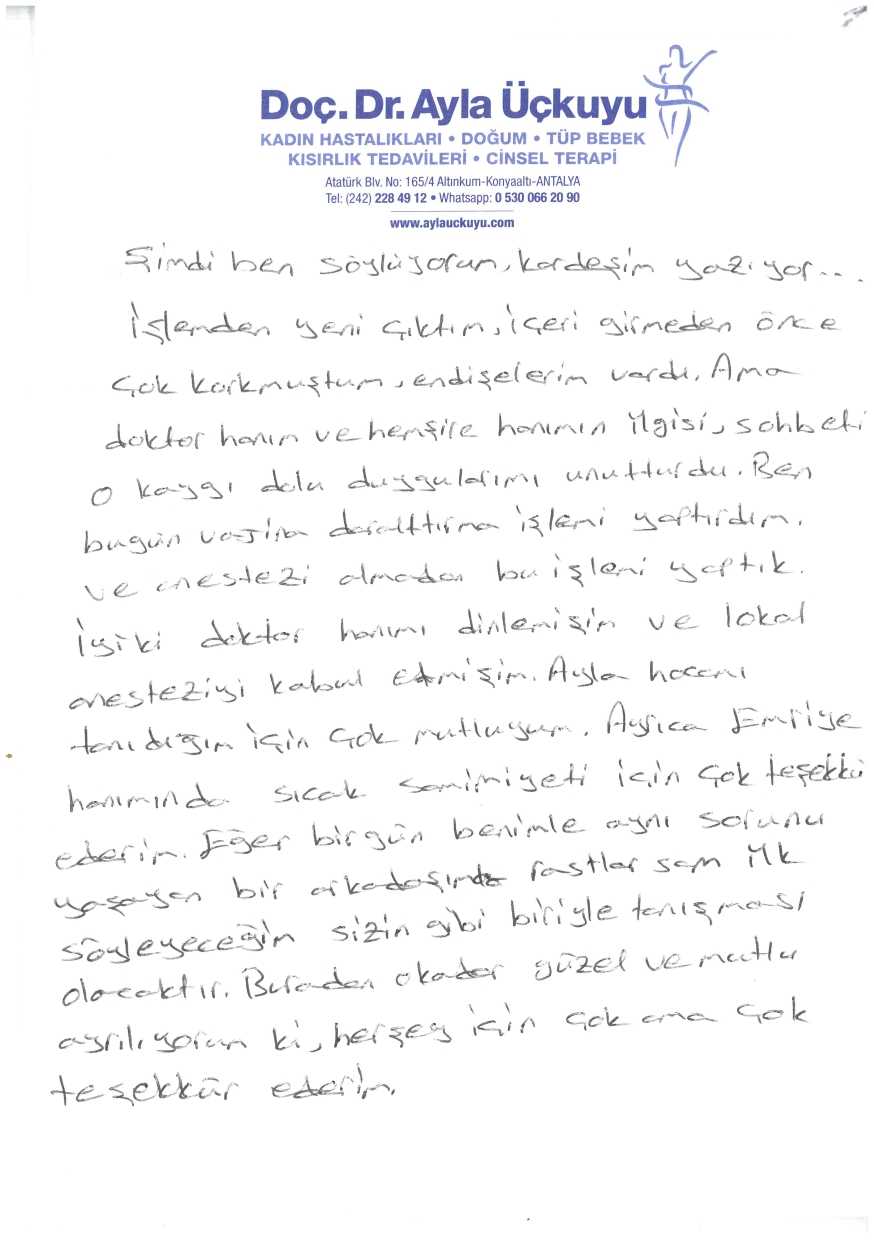 Doç. Dr. Ayla Üçkuyu
KADIN HASTALIKLARI • DOĞUM • TÜP BEBEK
KISIRLIK TEDAVİLERİ • CİNSEL TERAPİ
Atatürk Blv. No: 165/4 Altınkum-Konyaaltı-ANTALYA
Tel: (242) 228 49 12 • Whatsapp: 0 530 066 20 90
www.aylauckuyu.com
Şimdi ben söylüyorum, kardeşim yazıyor...
İşlemden yeni çıktım, içeri girmeden önce
çok korkmuştum, endişelerim vardı. Ama
doktor hanım ve hemşire hanımın ilgisi, sohbeti
o kaygı dolu duygularımı unutturdu. Ben
bugün vajina daralttırma işlemi yaptırdım.
ve anestezi almadan bu işlemi yaptık.
İyiki doktor hanımı dinlemişim ve lokal
anesteziyi kabul etmişim. Ayla hocamı
tanıdığım için çok mutluyum. Ayrıca Emriye
hanımında sıcak samimiyeti için çok teşekkü
ederim. Eğer birgün benimle aynı sorunu
yaşayan bir arkadaşımla rastlar sam ilk
söyleyeceğim sizin gibi biriyle tanışması
olacaktır. Buradan okadar güzel ve mutlu
ayrılıyorum ki, herşey için çok ama çok
teşekkür ederim.